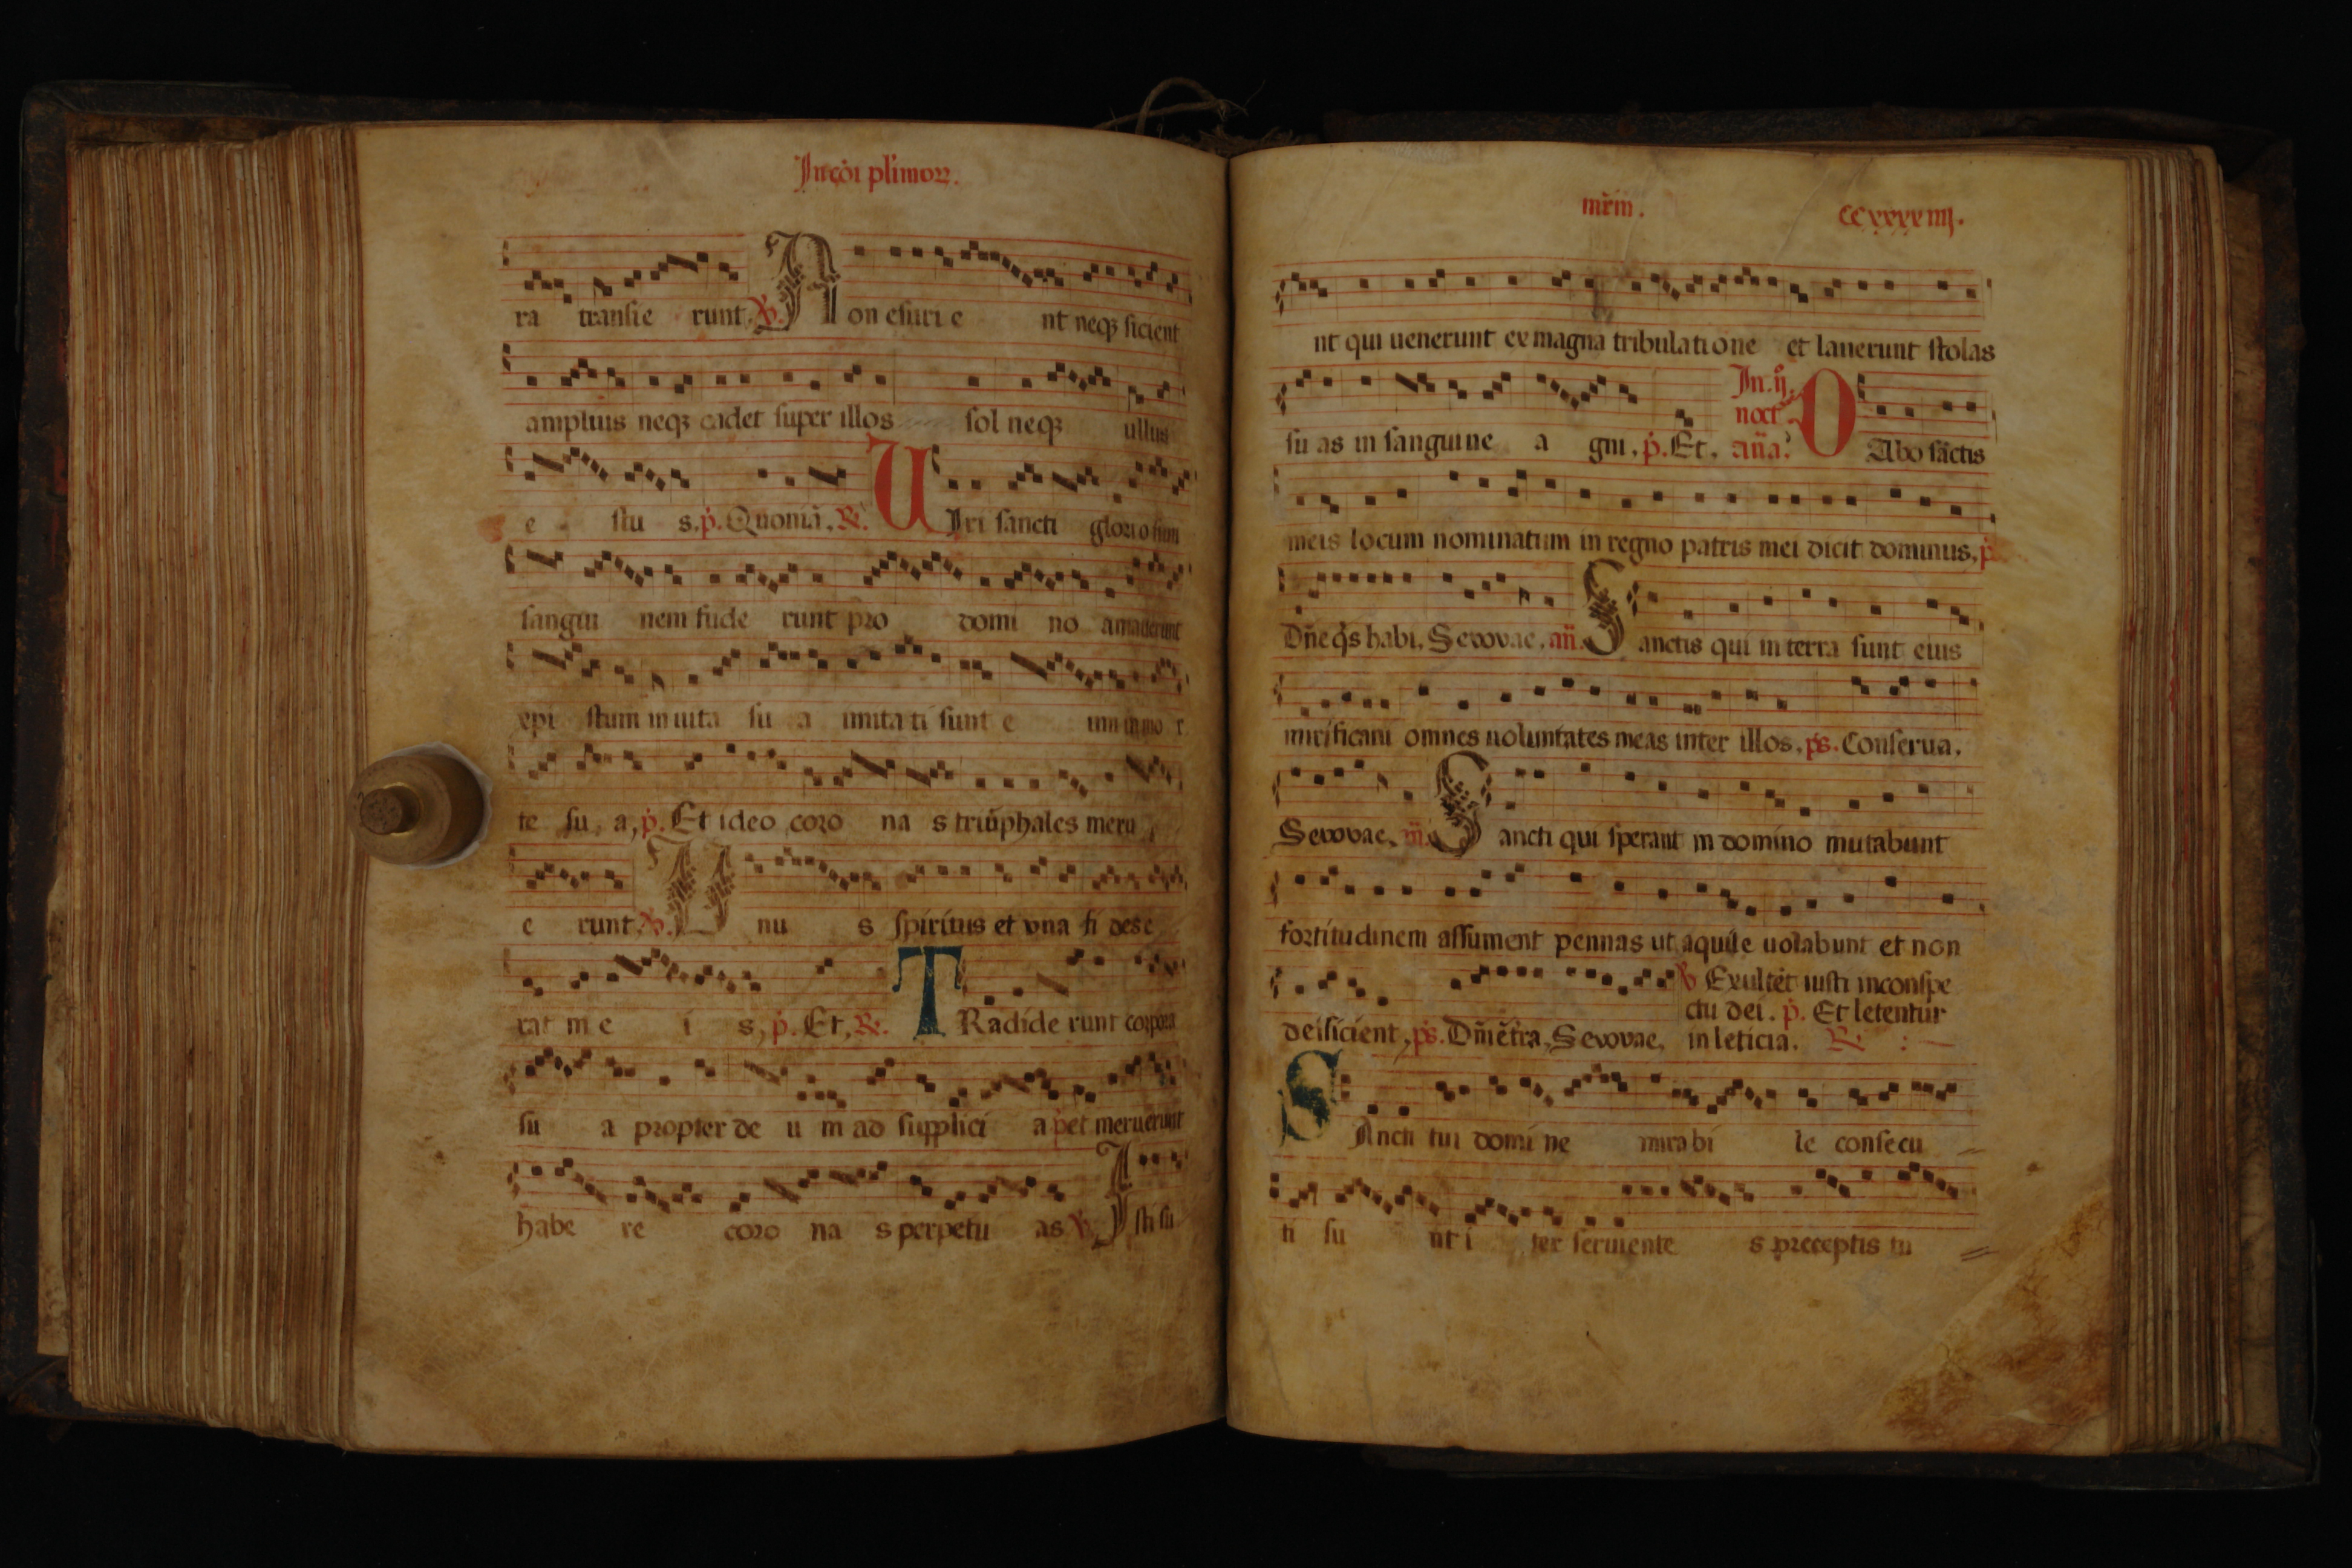 In cõi pl'imoꝝ.
ra transie runt. ℣. Non esurie nt neqꝫ sicient
amplius neqꝫ cadet super illos sol neqꝫ ullus
e stu s. p̃. Quoniã. ℟. UIri sancti gloriosum
sangui nem fude runt pro domi no amauerunt
xpi stum in uita su a imitati sunt e um in mor
te su a, p̃. Et ideo coro na s triũphales meru
e runt. ℣. Unu s spiritus et una fi des e
rat in e i s, p̃. Et, ℟. TRadide runt corpora
su a propter de u m ad supplici a p̃ et meruerunt
habe re coro na s perpetu as ℣. Isti su
mr̃m. CCxxxxiiij.
nt qui uenerunt ex magna tribulatione et lauerunt stolas
su as in sanguine a gni. p̃. Et. In. ij. noct. añã. DAbo sãctis
meis locum nominatum in regno patris mei dicit dominus, p̃
Dñe q̃s habi. Seuouae. añ. Sanctis qui in terra sunt eius
mirificauit omnes uoluntates meas inter illos. ps. Conserua.
Seuouae. añ. Sancti qui sperant in domino mutabunt
fortitudinem assument pennas ut aquile uolabunt et non
deficient, ps. Dñi ẽ tr̃a, Seuouae. ℣ Exultẽt iusti in conspe
ctu dei. p̃. Et letentur
in leticia. ℟.
SAncti tui domi ne mirabi le consecu
ti su nt i ter seruiente s preceptis tu